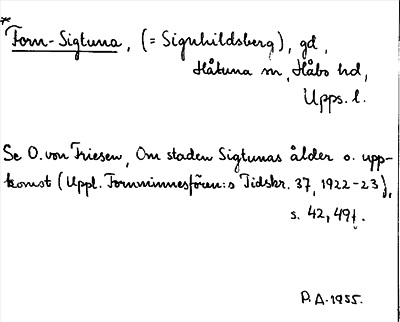 * Forn-Sigtuna, (= Signhildsberg), gd,
Håtuna sn, Håbo hd,
Upps. l.
Se O. von Friesen, Om staden Sigtunas ålder o. upp-
komst (Uppl. Fornminnesfören:s Tidskr. 37, 1922-23),
s. 42, 49f.
P.A. 1955.